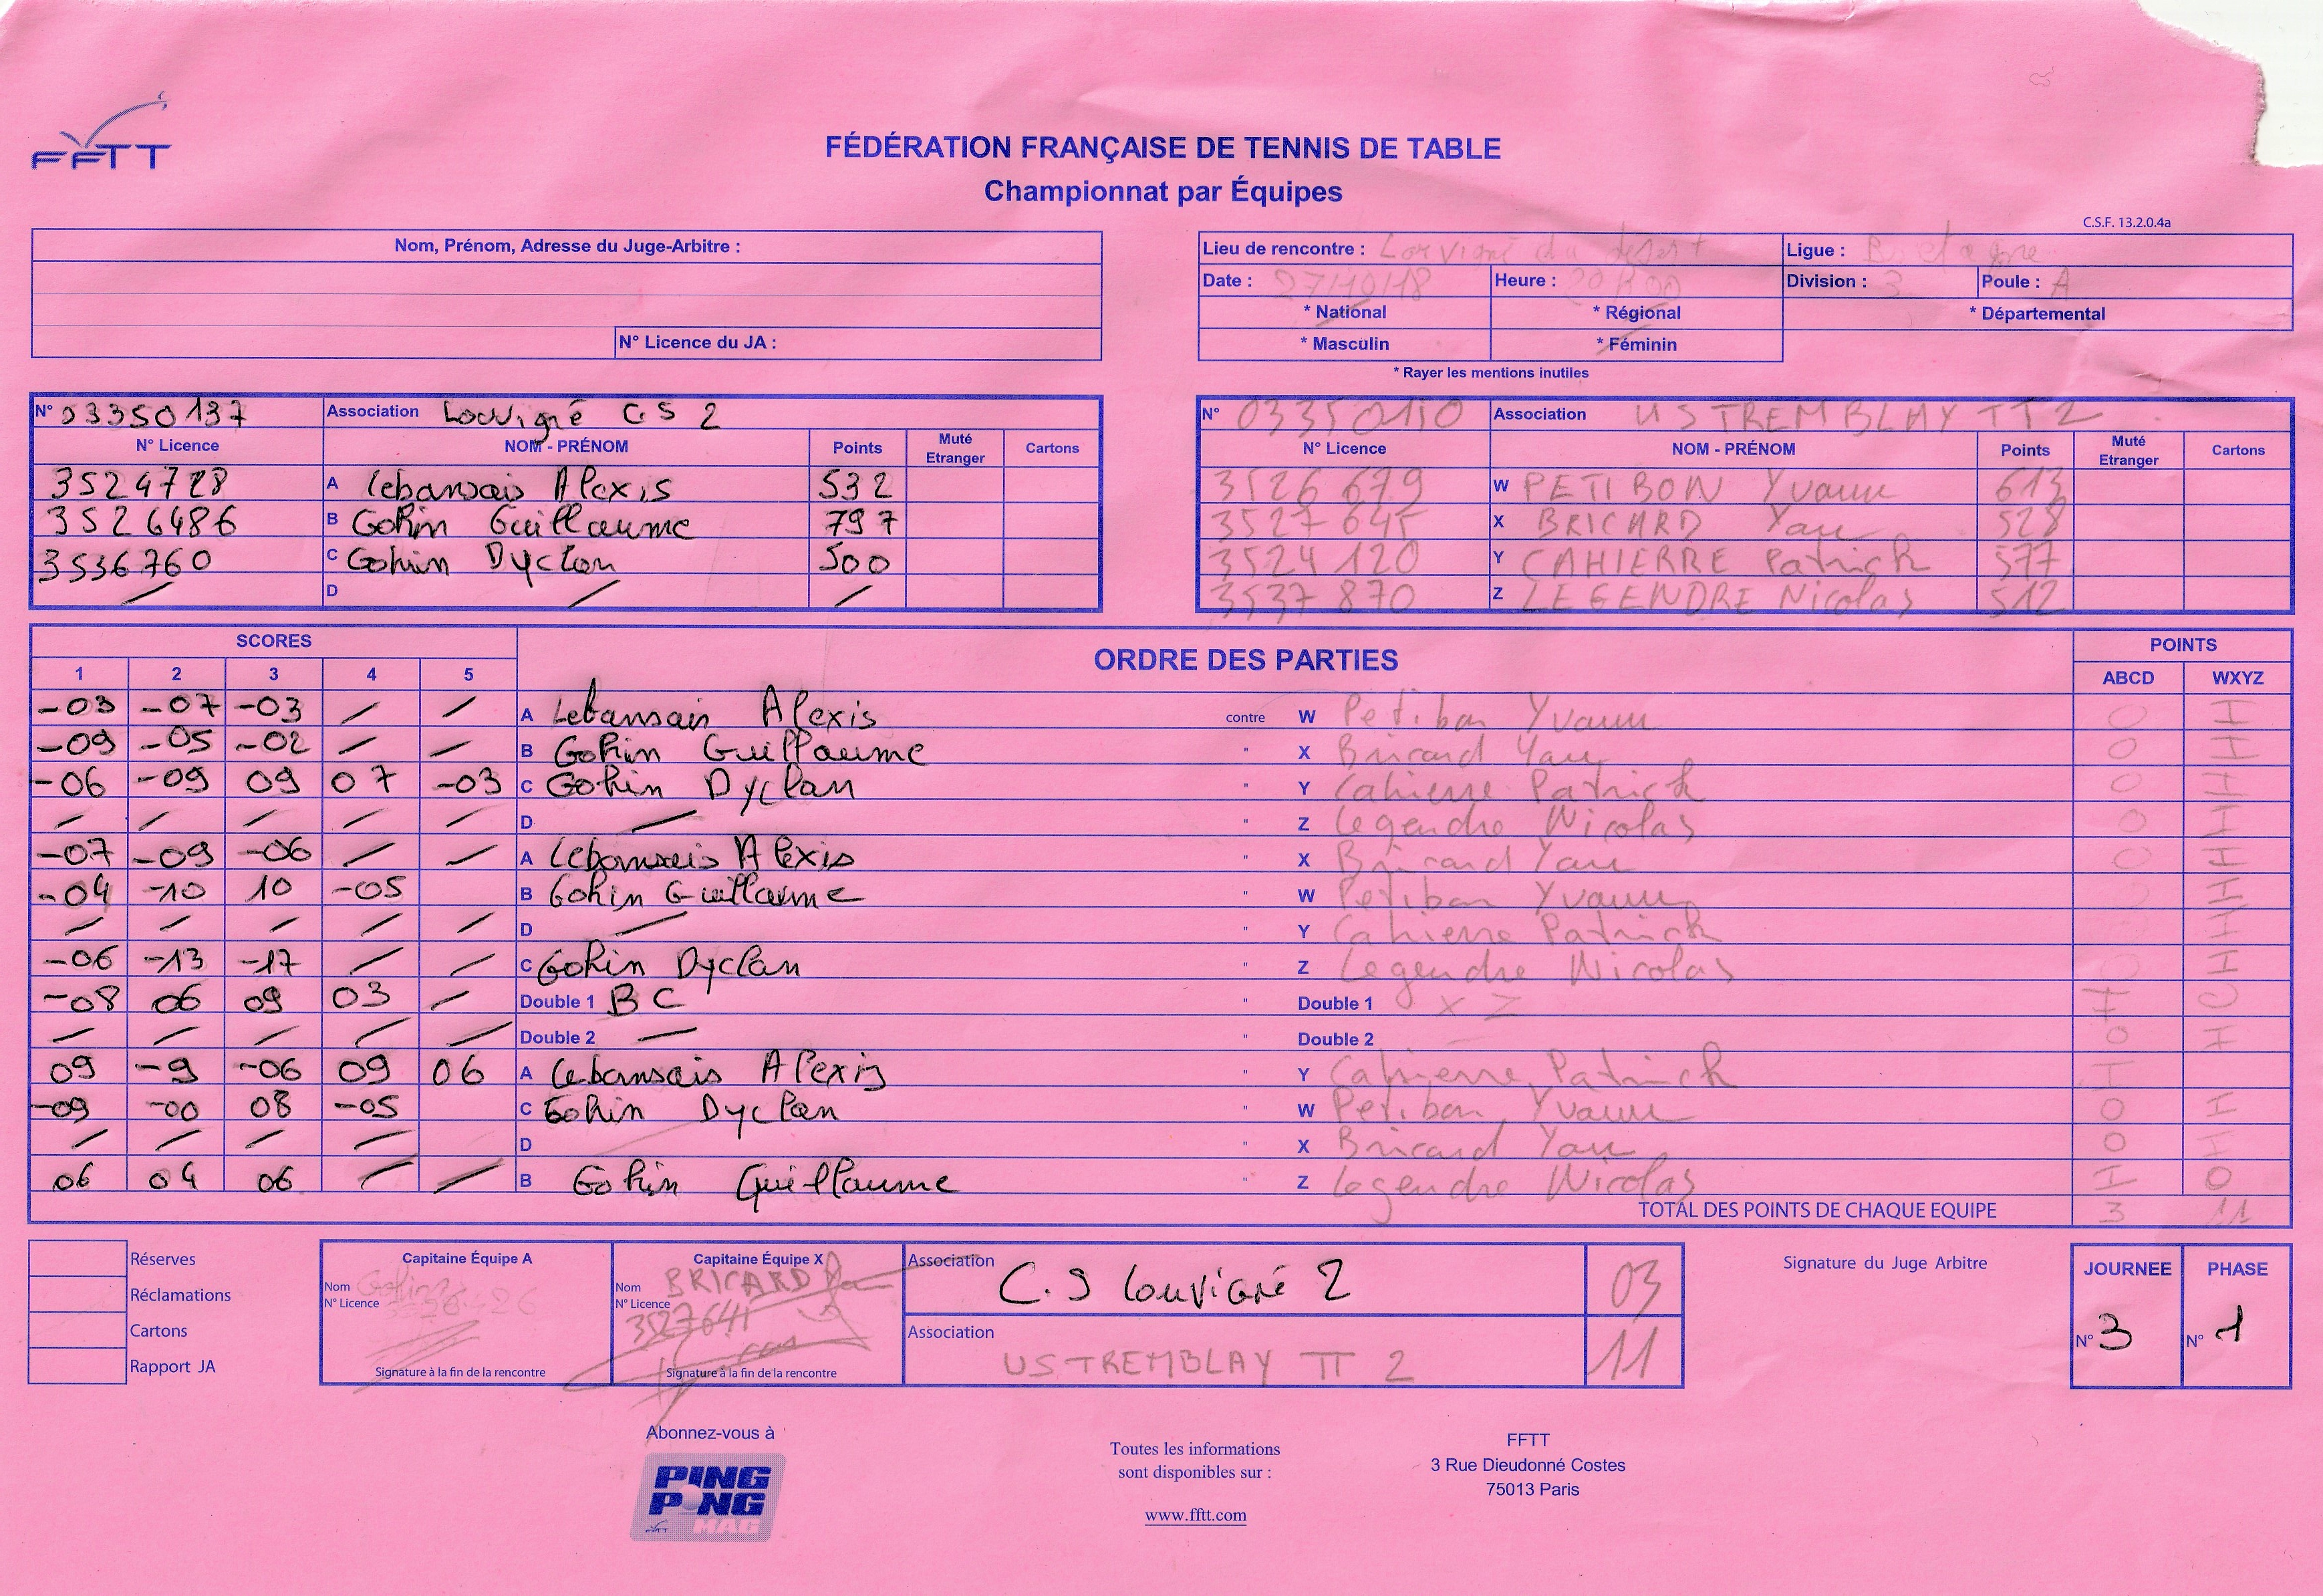 FFTT
FÉDÉRATION FRANÇAISE DE TENNIS DE TABLE
Championnat par Équipes
C.S.F. 13.2.0.4a
Nom, Prénom, Adresse du Juge-Arbitre :
N° Licence du JA :
Lieu de rencontre : Louvigné du désert Ligue : Bretagne
Date : 27/10/18 Heure : 20h00 Division : 3 Poule : A
* National * Régional * Départemental
* Masculin * Féminin
* Rayer les mentions inutiles
N° 03350137 Association Louvigné CS 2
N° Licence NOM - PRÉNOM Points Muté Etranger Cartons
3524728 A Lebansais Alexis 532
3526486 B Gohin Guillaume 797
3536760 C Gohin Dyclan 500
/ D / /
N° 03350150 Association US TREMBLAY TT 2
N° Licence NOM - PRÉNOM Points Muté Etranger Cartons
3526 679 W PETIBON Yvann 613
3527 641 X BRICARD Yan 528
3524 120 Y CAHIERRE Patrick 577
3537 870 Z LEGENDRE Nicolas 512
SCORES ORDRE DES PARTIES POINTS
1 2 3 4 5 ABCD WXYZ
-03 -07 -03 / / A Lebansais Alexis contre W Petibon Yvann 0 1
-09 -05 -02 / / B Gohin Guillaume " X Bricard Yan 0 1
-06 -09 09 07 -03 C Gohin Dyclan " Y Cahierre Patrick 0 1
/ / / / / D / " Z Legendre Nicolas 0 1
-07 -09 -06 / / A Lebansais Alexis " X Bricard Yan 0 1
-04 -10 10 -05 B Gohin Guillaume " W Petibon Yvann 1
/ / / / / D / " Y Cahierre Patrick 1
-06 -13 -17 / / C Gohin Dyclan " Z Legendre Nicolas 1
-08 06 09 03 / Double 1 BC " Double 1 X Z 1 0
/ / / / / Double 2 — " Double 2 0 1
09 -9 -06 09 06 A Lebansais Alexis " Y Cahierre Patrick 1
-09 -00 08 -05 C Gohin Dyclan " W Petibon Yvann 0 1
/ / / / D " X Bricard Yan 0 1
06 04 06 / / B Gohin Guillaume " Z Legendre Nicolas 1 0
TOTAL DES POINTS DE CHAQUE EQUIPE 3 11
Réserves
Réclamations
Cartons
Rapport JA
Capitaine Équipe A
Nom Gohin
N° Licence
Signature à la fin de la rencontre
Capitaine Équipe X
Nom BRICARD
N° Licence
3527641
Signature à la fin de la rencontre
Association C.S Louvigné 2 03
Association US TREMBLAY TT 2 11
Signature du Juge Arbitre
JOURNEE PHASE
N° 3 N° 1
Abonnez-vous à
PING PONG MAG
Toutes les informations
sont disponibles sur :
www.fftt.com
FFTT
3 Rue Dieudonné Costes
75013 Paris